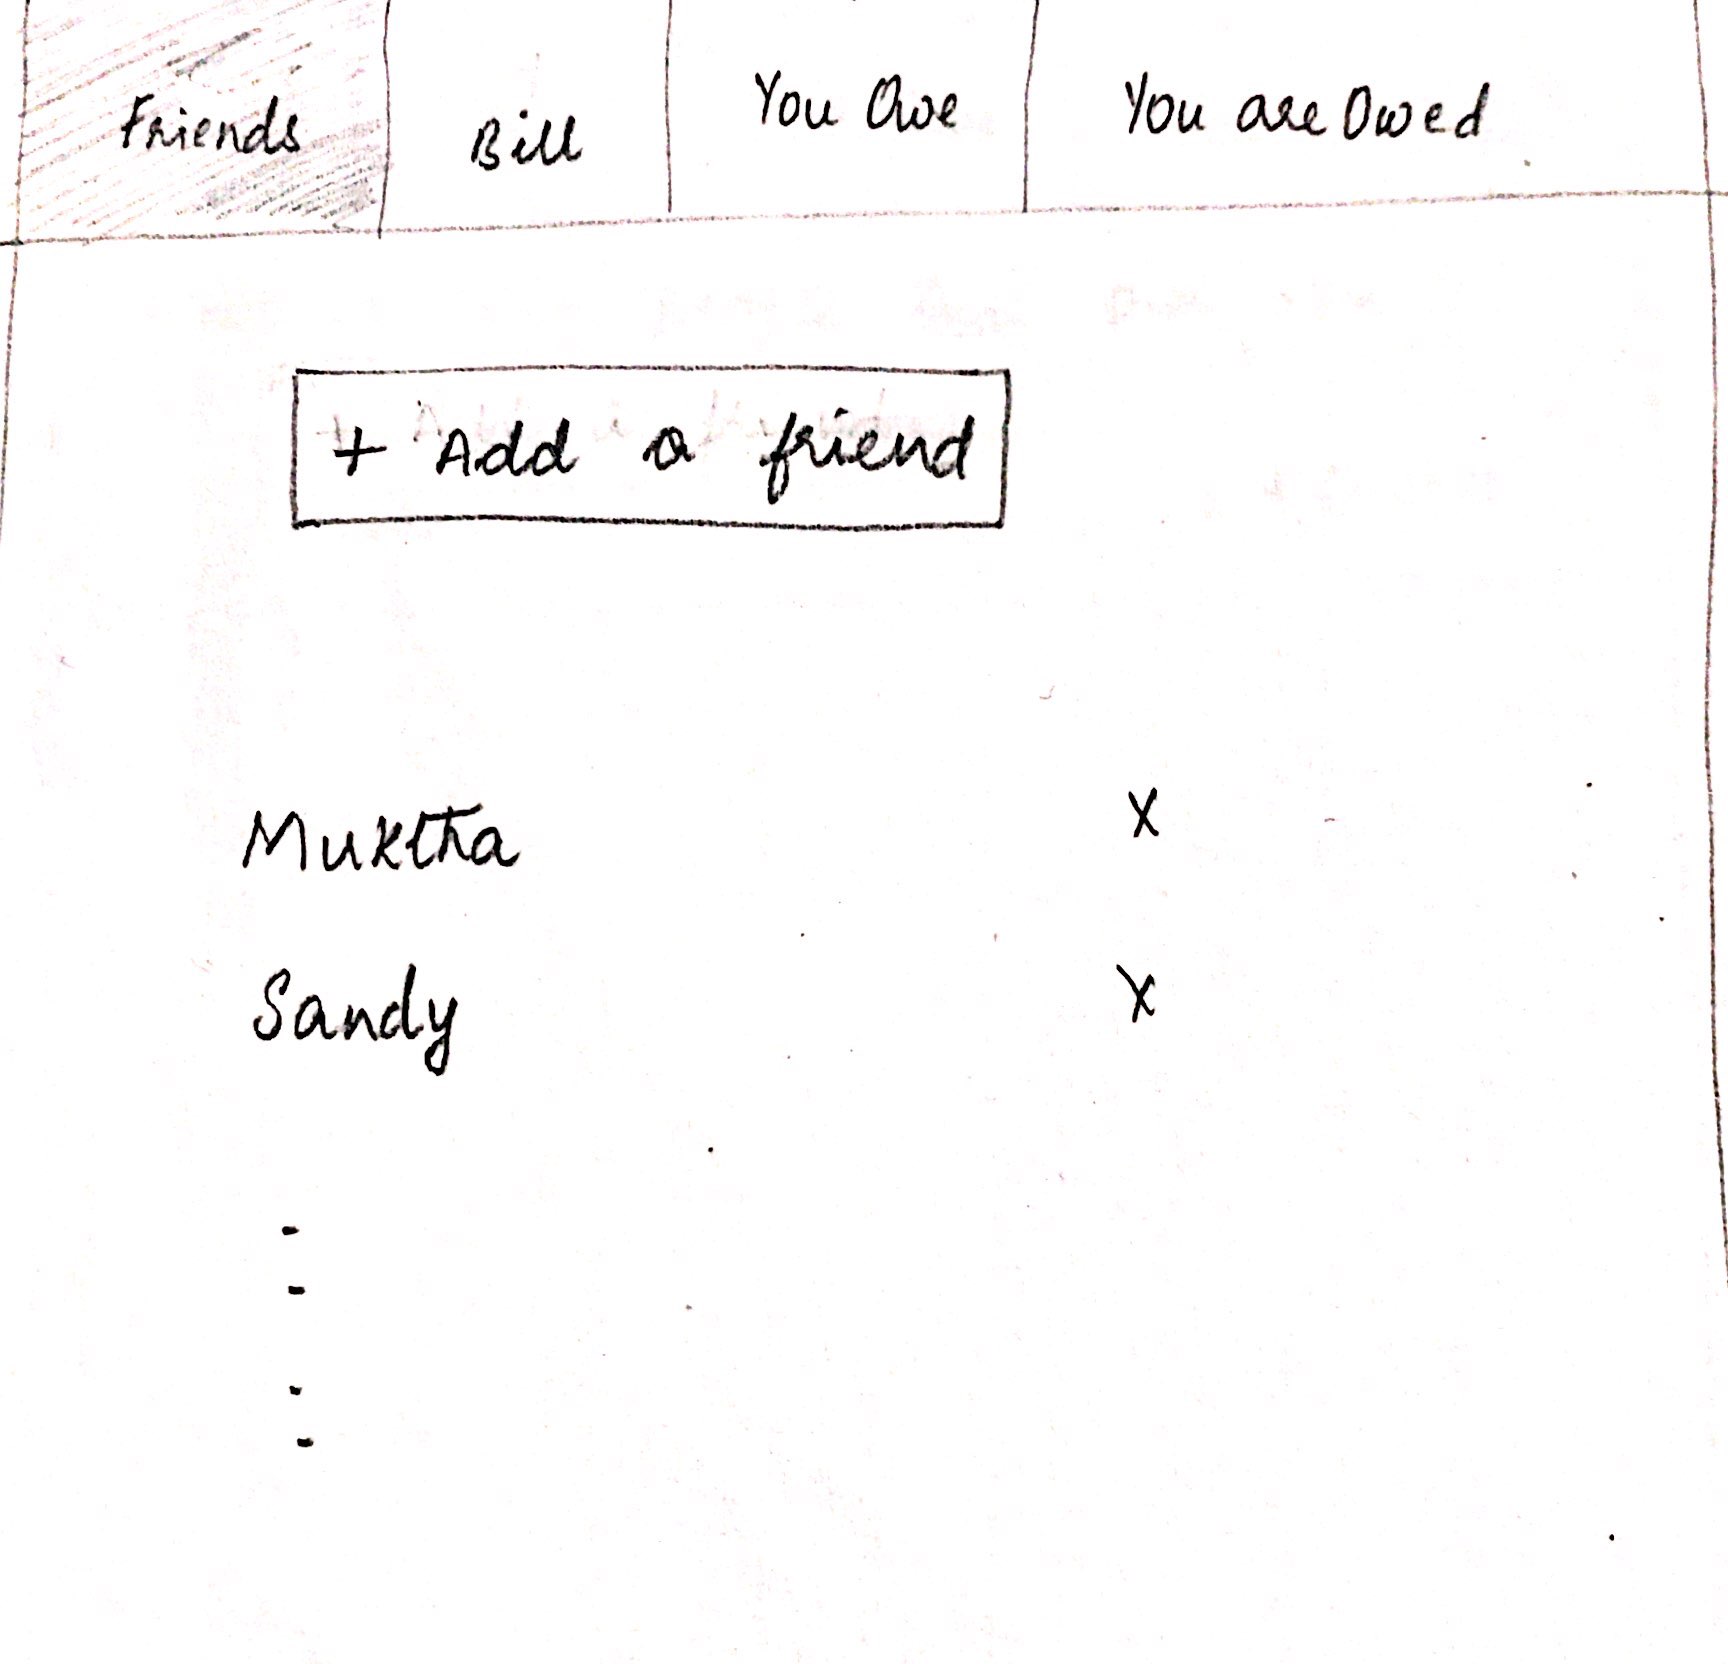 Friends Bill You Owe You are Owed
+ Add a friend
Muktha X
Sandy X
-
-
-
-